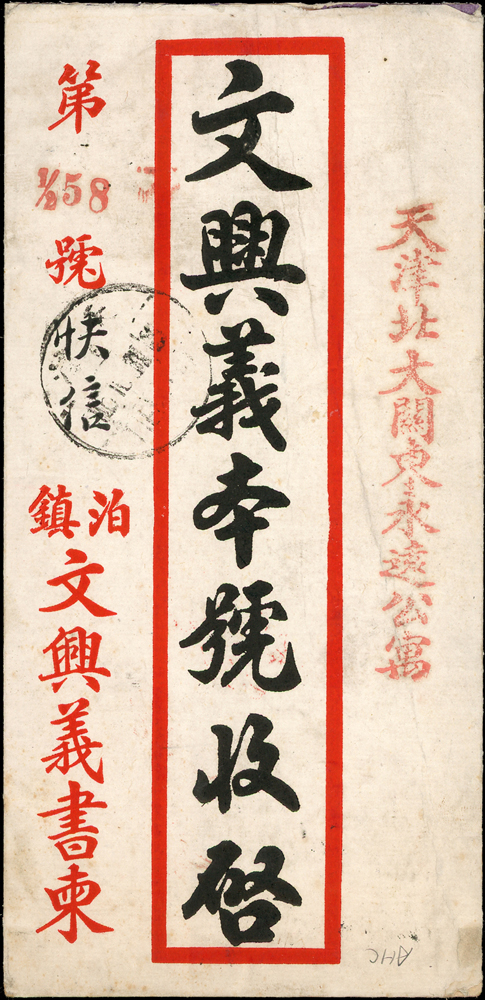 天津北大關東永遠公寓
文興義本號收啓
第
1/2 58
號
快信
泊鎮
文興義書柬
AHC